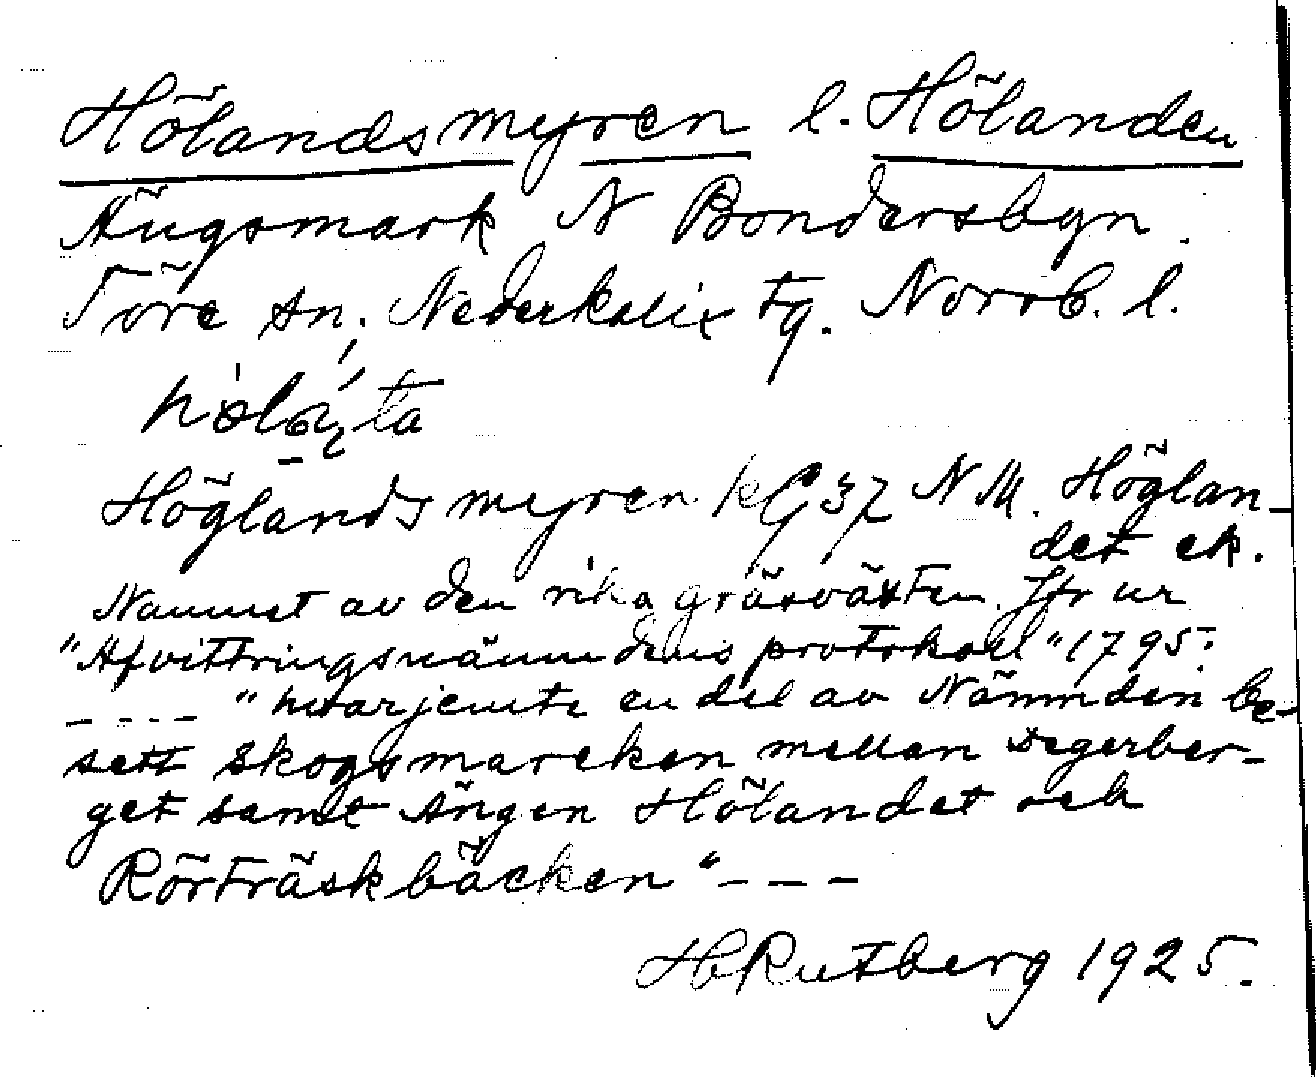 Hölandsmyren l. Hölanden
Ängsmark N Bondersbyn.
Töre sn, Nederkalix tg. Norrb. l.
Höglandsmyren k G 37 N M. Höglan-
det ek.
Namnet av den rika gräsväxten. Jfr ur
"Afvittringsnämndens protokoll" 1795:
---- "hvarjemte en del av Nämnden be-
sett skogsmarcken mellan Degerber-
get samt Ängen Hölandet och
Rörträskbäcken" ---
H Rutberg 1925.